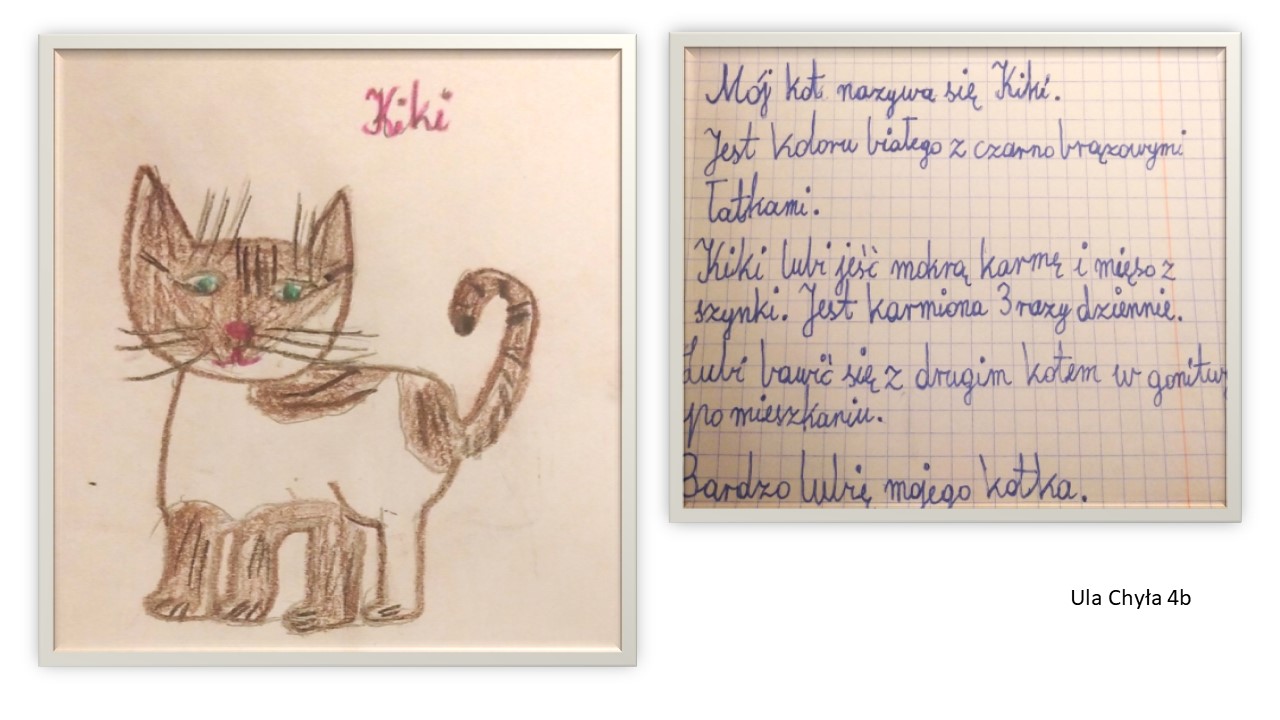 Kiki
Mój kot nazywa się Kiki.
Jest koloru białego z czarno brązowymi
łatkami.
Kiki lubi jeść mokrą karmę i mięso z
szynki. Jest karmiona 3 razy dziennie.
Lubi bawić się z drugim kotem w gonitwy
po mieszkaniu.
Bardzo lubię mojego kotka.
Ula Chyła 4b